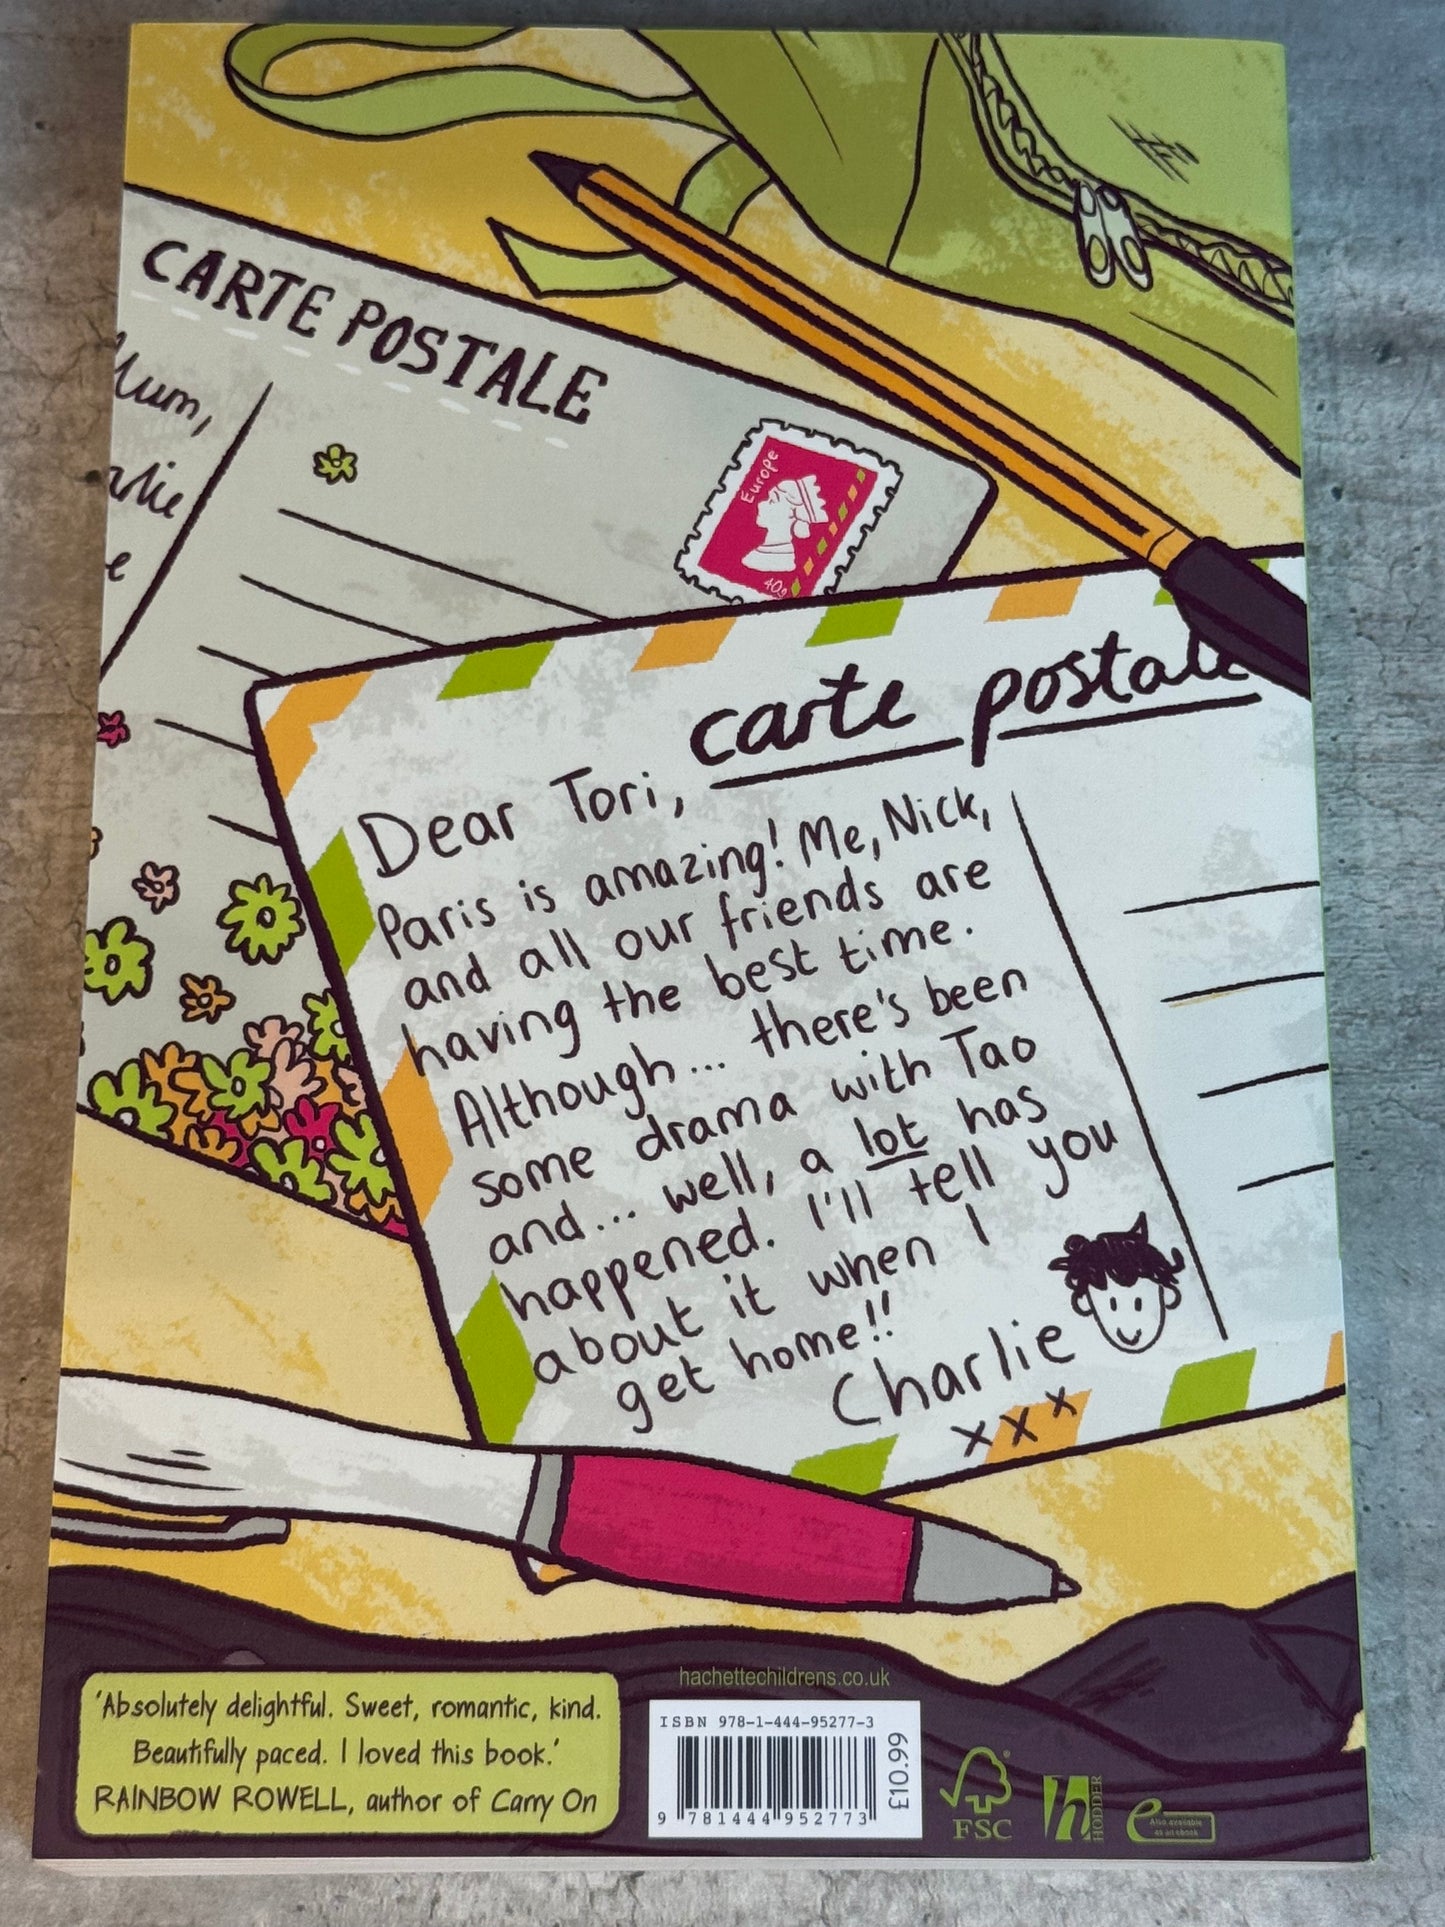 CARTE POSTALE
Mum,
Europe
40g
carte postale
Dear Tori,
Paris is amazing! Me, Nick,
and all our friends are
having the best time.
Although... there's been
some drama with Tao
and... well, a lot has
happened. I'll tell you
about it when I
get home!!
Charlie
x x x
'Absolutely delightful. Sweet, romantic, kind.
Beautifully paced. I loved this book.'
RAINBOW ROWELL, author of Carry On
hachettechildrens.co.uk
ISBN 978-1-444-95277-3
£10.99
9 781444 952773
FSC
h HODDER
e Also available
as an ebook